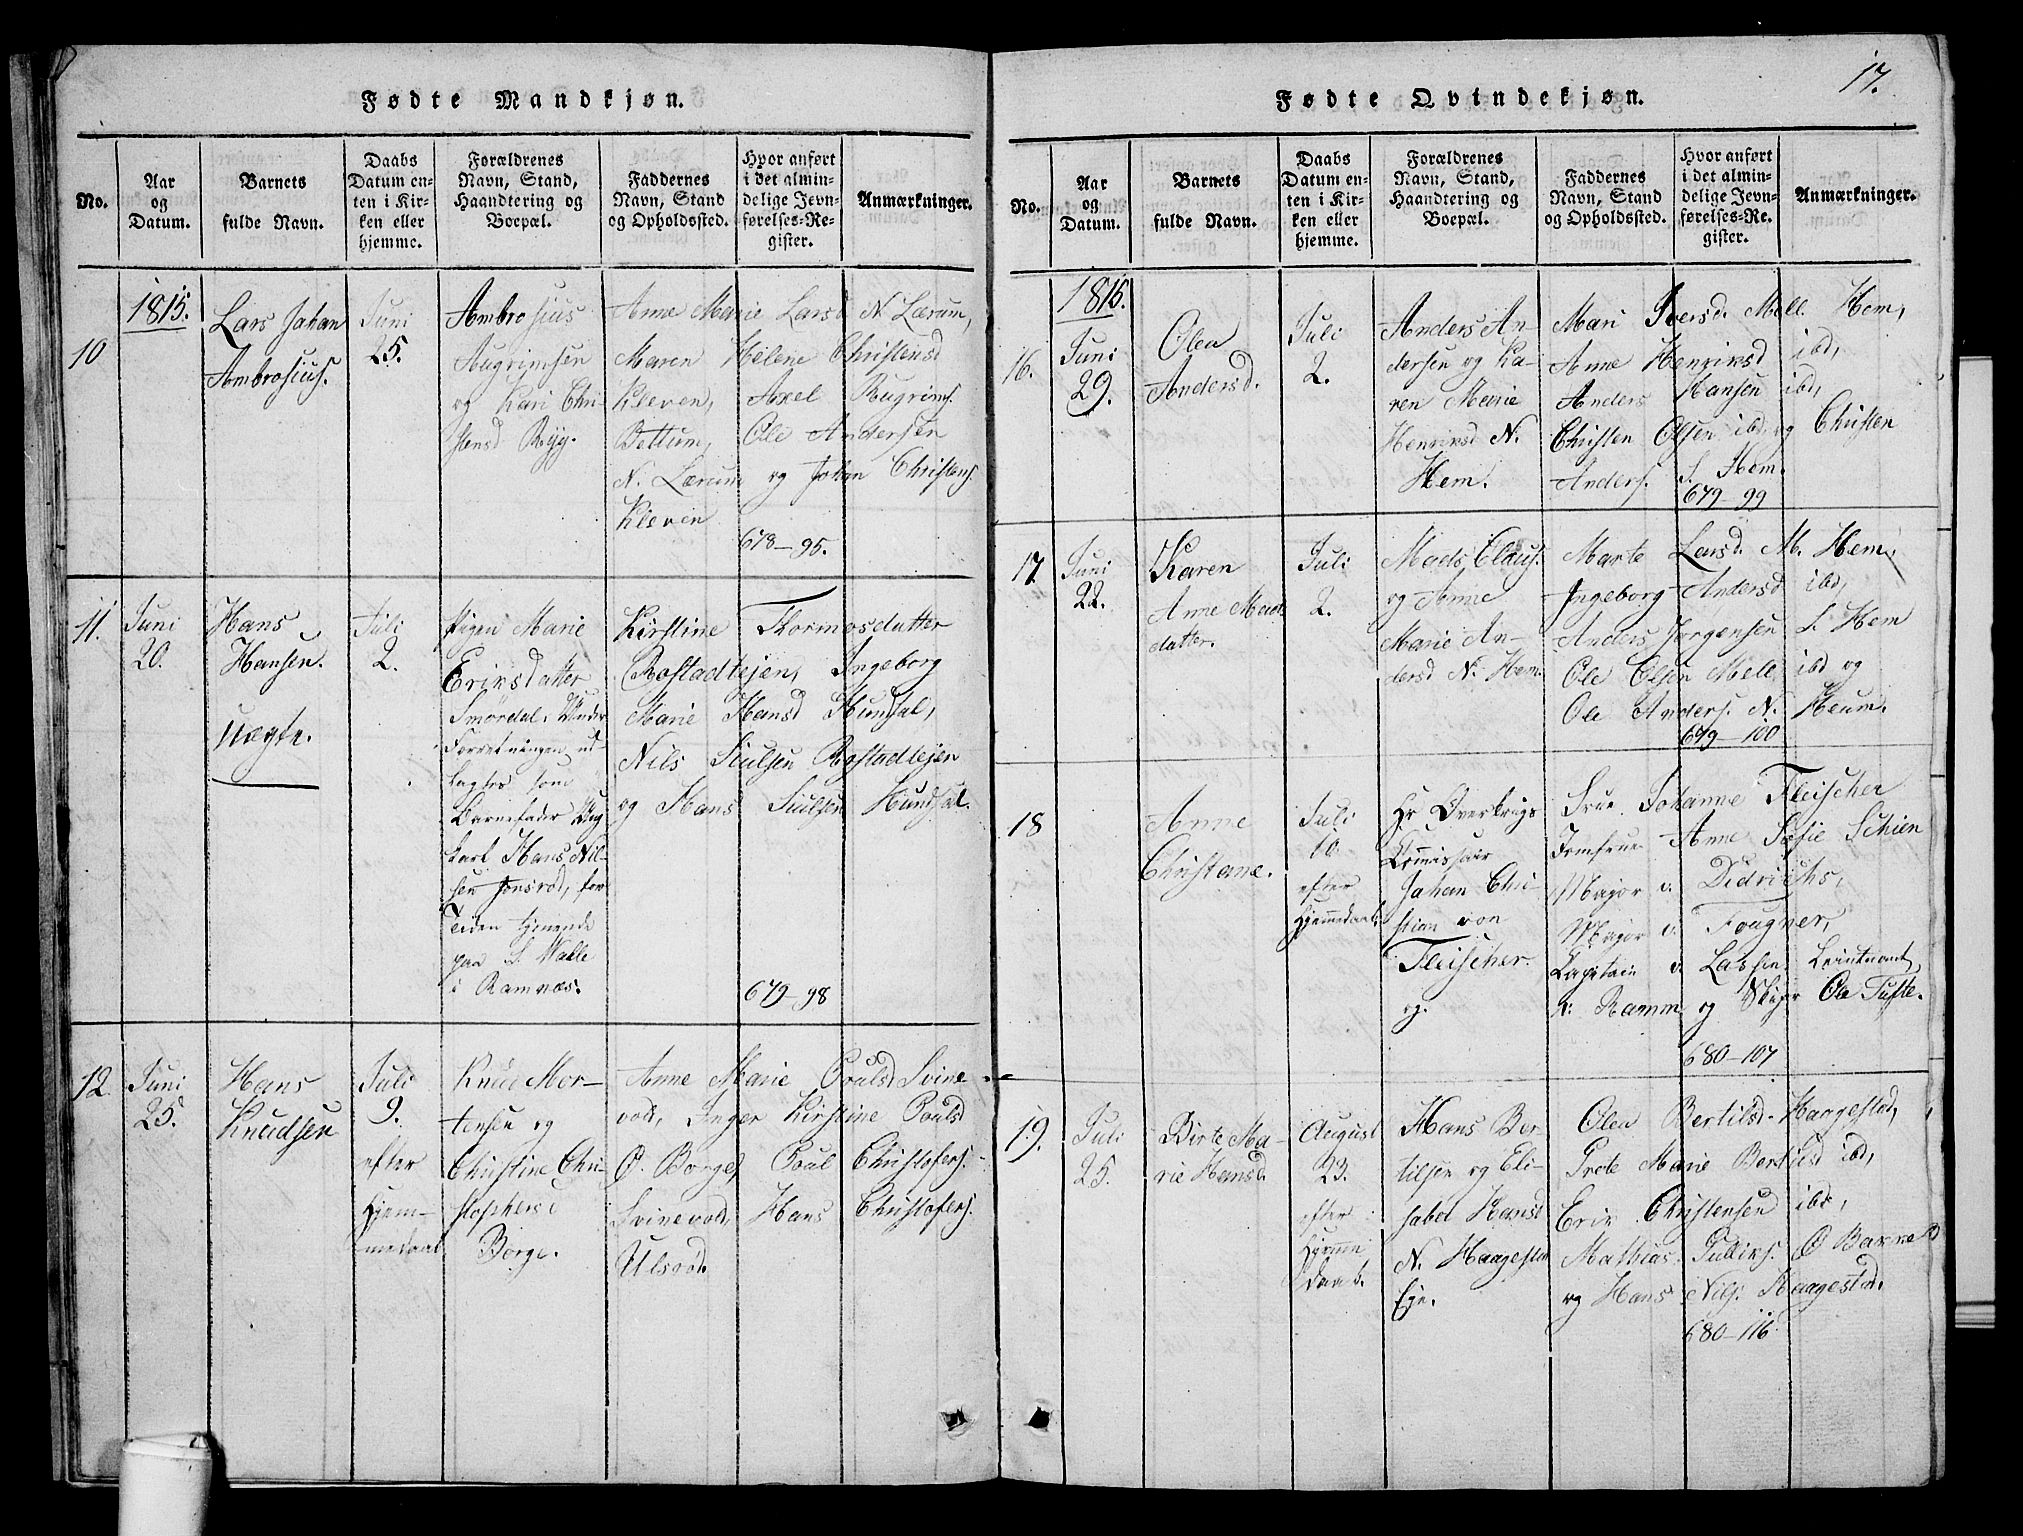 Fødte Mandkjøn.
No.
Aar
og
Datum.
Barnets
fulde Navn.
Daabs
Datum en-
ten i Kir-
ken eller
hjemme.
Forældrenes
Navn, Stand,
Haandtering og
Boepæl.
Faddernes
Navn, Stand
og Opholdssted.
Hvor anført
i det almin-
delige Jevn-
førelses-Re-
gister.
Anmærkninger.
10
1815.
Lars Johan
Ambrosius.
Juni
25.
Ambrosius
Augrimsen
og Kari Chri-
stensd Ryg.
Anne Marie Larsd N. Lærum,
Maren Helene Christensd
Kleven, Axel Augrims.
Bettum, Ole Andersen
N. Lærum og Johan Christens.
Kleven
678-95.
11.
Juni
20.
Hans
Hansen.
uægte.
Juli
2.
Pigen Marie
Eriksdatter
Smørdal. Under
Forretningen ud-
lagtes som
Barnefader Ung
karl Hans Nil-
sen Jonsrød, for
Tiden tjenende
paa S. Walle
i Ramnæs.
Kirstine Thormosdatter
Bostadlejen, Ingeborg
Marie Hansd Hundsal,
Nils Siulsen Bostadlejen
og Hans Siulsen Hundsal.
679-98
12.
Juni
25.
Hans
Knudsen
Juli
9.
efter
Hjem-
medaab
Knud Mor-
tensen og
Christine Chri-
stophersd
Borge.
Anne Marie Poulsd Svine
vold, Inger Kirstine Poulsd
Ø. Borge, Poul Christofers.
Svinevold, Hans Christofers.
Ulsrød.
17.
Fødte Qvindekjøn.
No.
Aar
og
Datum.
Barnets
fulde Navn.
Daabs
Datum en-
ten i Kir-
ken eller
hjemme.
Forældrenes
Navn, Stand,
Haandtering og
Boepæl.
Faddernes
Navn, Stand
og Opholdssted.
Hvor anført
i det almin-
delige Jevn-
førelses-Re-
gister.
Anmærkninger.
16.
1815.
Juni
29.
Olea
Andersd.
Juli
2.
Anders An-
dersen og Ka-
ren Marie
Henriksd N.
Hem.
Mari Iversd. Mell. Hem,
Anne Henriksd ibd,
Anders Hansen ibd,
Christen Olsen ibd, og Christen
Anders. S. Hem.
679-99
17.
Juni
22.
Karen
Anne Mads
datter.
Juli
2.
Mads Claus.
og Anne
Marie An-
dersd N. Hem.
Marte Larsd. M. Hem,
Ingeborg Andersd ibd,
Anders Jørgensen S. Hem
Ole Olsen Mell. ibd og
Ole Anders. N. Heum.
679-100
18
Anne
Christiane.
Juli
10.
efter
Hjemmedaab.
Hr Overkrigs
Commissair
Johan Chri-
stian von
Fleischer.
og.
Frue Johanne Fleischer
Jomfrue Anne Sofie Schien
Major v. Didrichs,
Major v. Fougner,
Kapitain v. Lassen, Leintnant
v: Ramm og Skipr Ole Tufte.
680-107
19.
Juli
25.
Birte Ma-
rie Hansd.
August
23.
efter
Hjemme
daab.
Hans Ber
tilsen og Eli-
sabet Hansd
N. Haagestad
Eje.
Olea Bertilsd. Haagestad,
Grete Marie Bertilsd ibd,
Erik Christensen ibd,
Mathias Gulliks. Ø Bakke
og Hans Nils. Haagestad.
680-116.